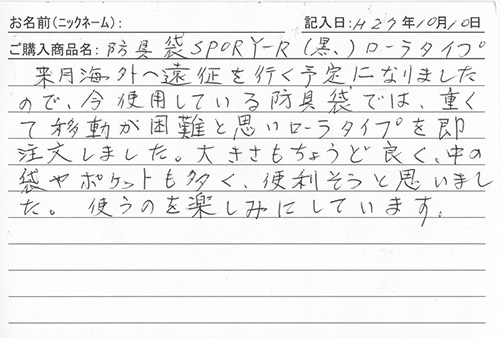 お名前(ニックネーム):　記入日:H27年10月10日
ご購入商品名:防具袋SPORY-R(黒、)ローラタイプ
来月海外へ遠征を行く予定になりました
ので、今使用している防具袋では、重く
て移動が困難と思いローラタイプを即
注文しました。大きさもちょうど良く、中の
袋やポケットも多く、便利そうと思いまし
た。使うのを楽しみにしています。